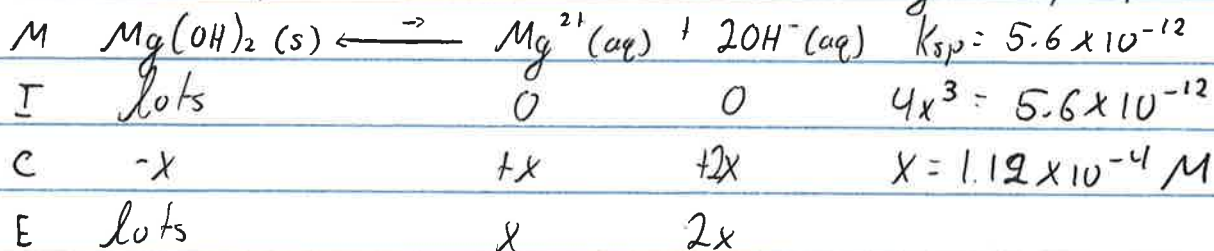 M Mg(OH)₂ (s) ⟵⇀ Mg²⁺ (aq) + 2OH⁻ (aq) Ksp = 5.6 x 10⁻¹²
I lots 0 0 4x³ = 5.6 x 10⁻¹²
C -x +x +2x x = 1.12 x 10⁻⁴ M
E lots x 2x